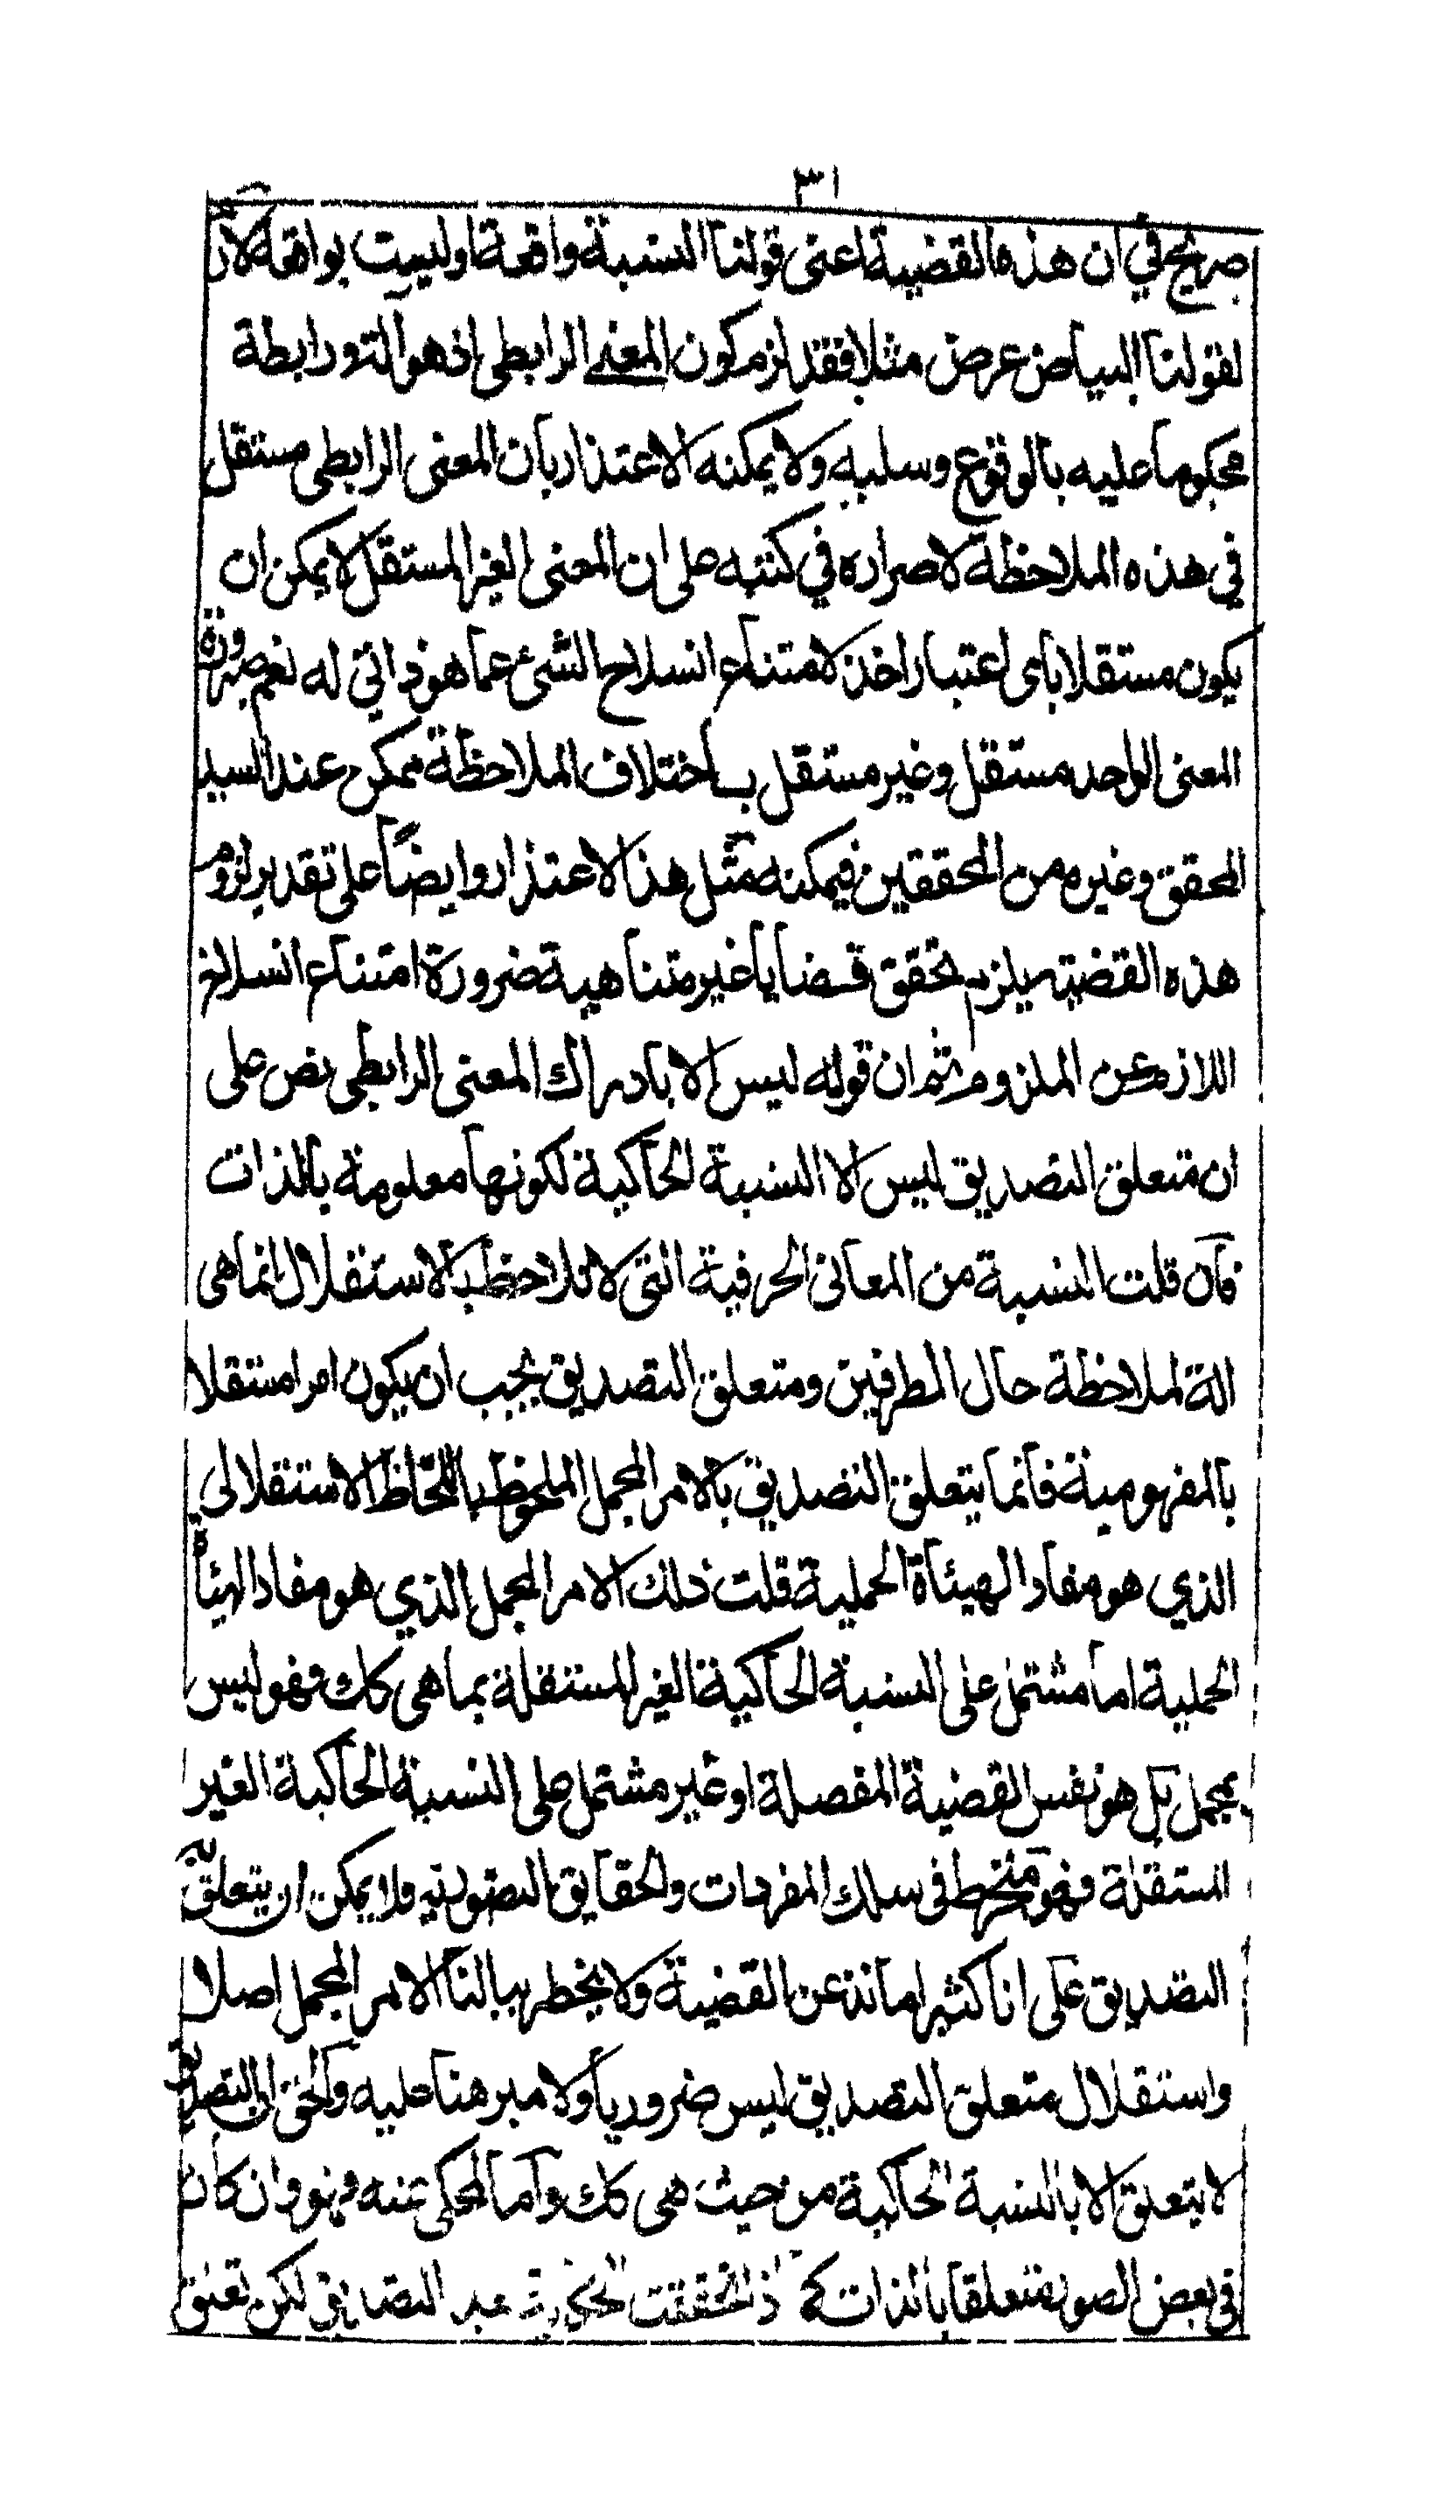 ٣١
صريح في ان هذه القضية اعنى قولنا النسبة واقعة اوليست بواقعة لازمة
لقولنا البياض عرض مثلا فقد لزم كون المعنى الرابطى اذ هو آلة ورابطة
محكوما عليه بالوقوع وسلبه ولا يمكنه الاعتذار بان المعنى الرابطى مستقل
في هذه الملاحظة لاصراره في كتبه على ان المعنى الغير المستقل لا يمكن ان
يكون مستقلا باى اعتبار اخذ لامتناع انسلاخ الشئ عما هو ذاتي له نعم صيرورة
المعنى الواحد مستقل وغير مستقل باختلاف الملاحظة ممكن عند السيد
المحقق وغيره من المحققين فيمكنه مثل هذا الاعتذار وايضاً على تقدير لزوم
هذه القضية يلزم تحقق قضايا غير متناهية ضرورة امتناع انسلاخ
اللازم عن الملزوم ثم ان قوله ليس الا بادراك المعنى الرابطى نص على
ان متعلق التصديق ليس الا النسبة الحاكية لكونها معلومة بالذات
فان قلت النسبة من المعانى الحرفية التى لا تلاحظ بالاستقلال انما هى
الة لملاحظة حال الطرفين ومتعلق التصديق يجب ان يكون امرا مستقلا
بالمفهومية فانما يتعلق التصديق بالامر المجمل الملحوظ باللحاظ الاستقلالي
الذي هو مفاد الهيئاة الحملية قلت ذلك الامر المجمل الذي هو مفاد الهيئاة
الحملية اما مشتمل على النسبة الحاكية الغير المستقلة بما هى كك فهو ليس
بمجمل بل هو نفس القضية المفصلة او غير مشتمل على النسبة الحاكية الغير
المستقلة فهو منخرط فى سلك المفردات والحقايق التصورية فلا يمكن ان يتعلق به
التصديق على انا كثيرا ما نذعن بالقضية ولا يخطر ببالنا الامر المجمل اصلا
واستقلال متعلق التصديق ليس ضروريا ولا مبرهنا عليه والحق ان التصديق
لا يتعلق الا بالنسبة الحاكية من حيث هى كك واما المحكى عنه فهو وان كان
فى بعض الصور متعلقا بالذات كما اذا تحققت عند التصديق لكن تعلق